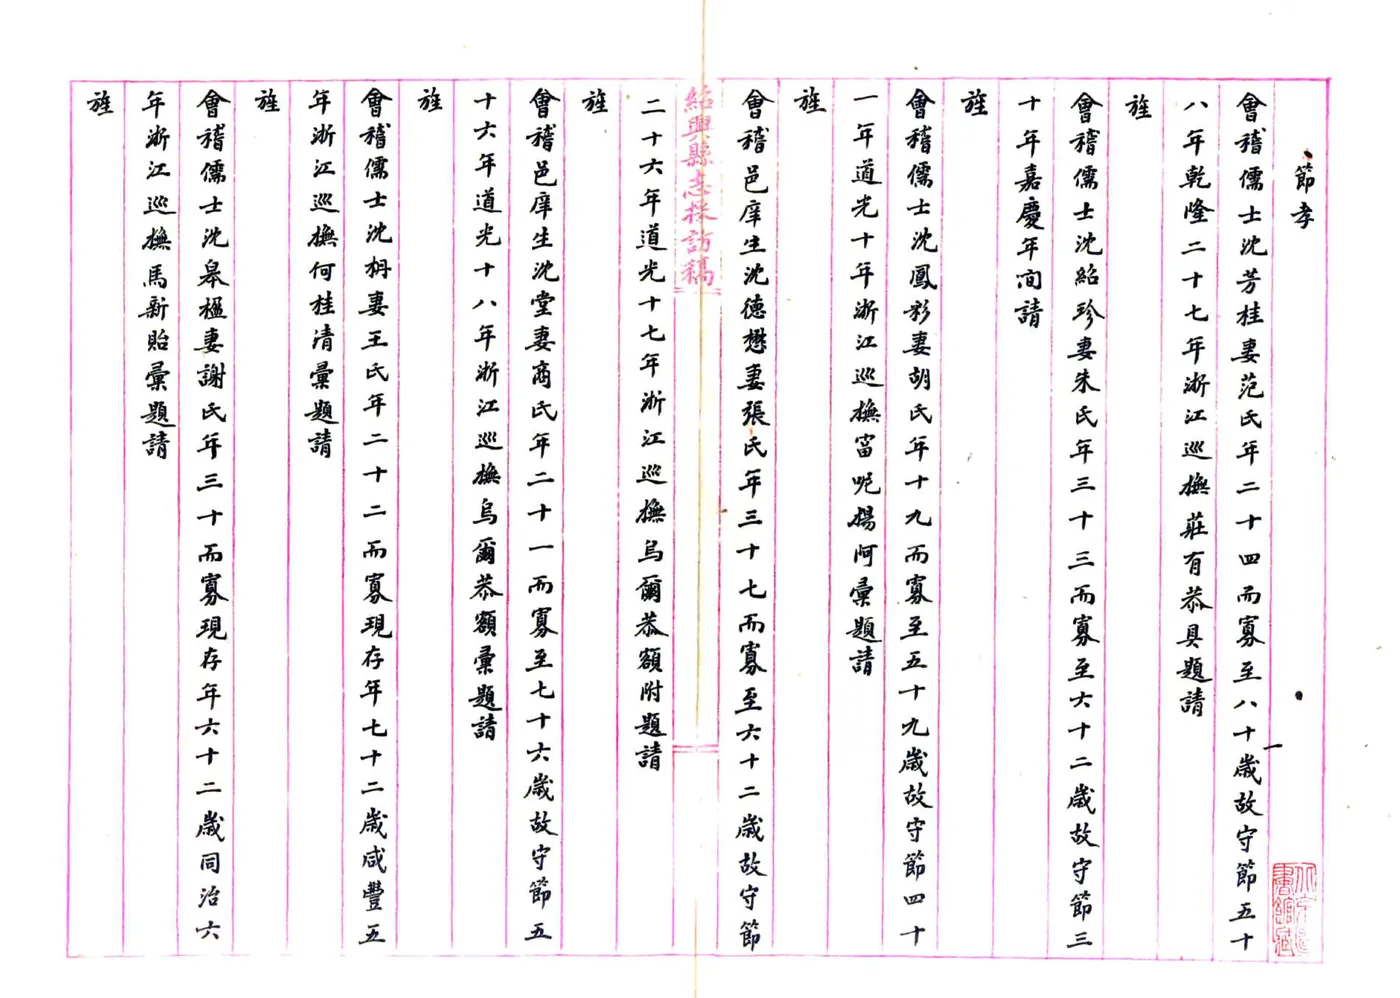 節孝
會稽儒士沈芳桂妻范氏年二十四而寡至八十歲故守節五十
八年乾隆二十七年浙江巡撫莊有恭具題請
旌
會稽儒士沈紹珍妻朱氏年三十三而寡至六十二歲故守節三
十年嘉慶年間請
旌
會稽儒士沈鳳彩妻胡氏年十九而寡至五十九歲故守節四十
一年道光十年浙江巡撫富呢楊阿彙題請
旌
會稽邑庠生沈德懋妻張氏年三十七而寡至六十二歲故守節
紹興縣志採訪稿
二十六年道光十七年浙江巡撫烏爾恭額附題請
旌
會稽邑庠生沈堂妻商氏年二十一而寡至七十六歲故守節五
十六年道光十八年浙江巡撫烏爾恭額彙題請
旌
會稽儒士沈枬妻王氏年二十二而寡現存年七十二歲咸豐五
年浙江巡撫何桂清彙題請
旌
會稽儒士沈皋楹妻謝氏年三十而寡現存年六十二歲同治六
年浙江巡撫馬新貽彙題請
旌